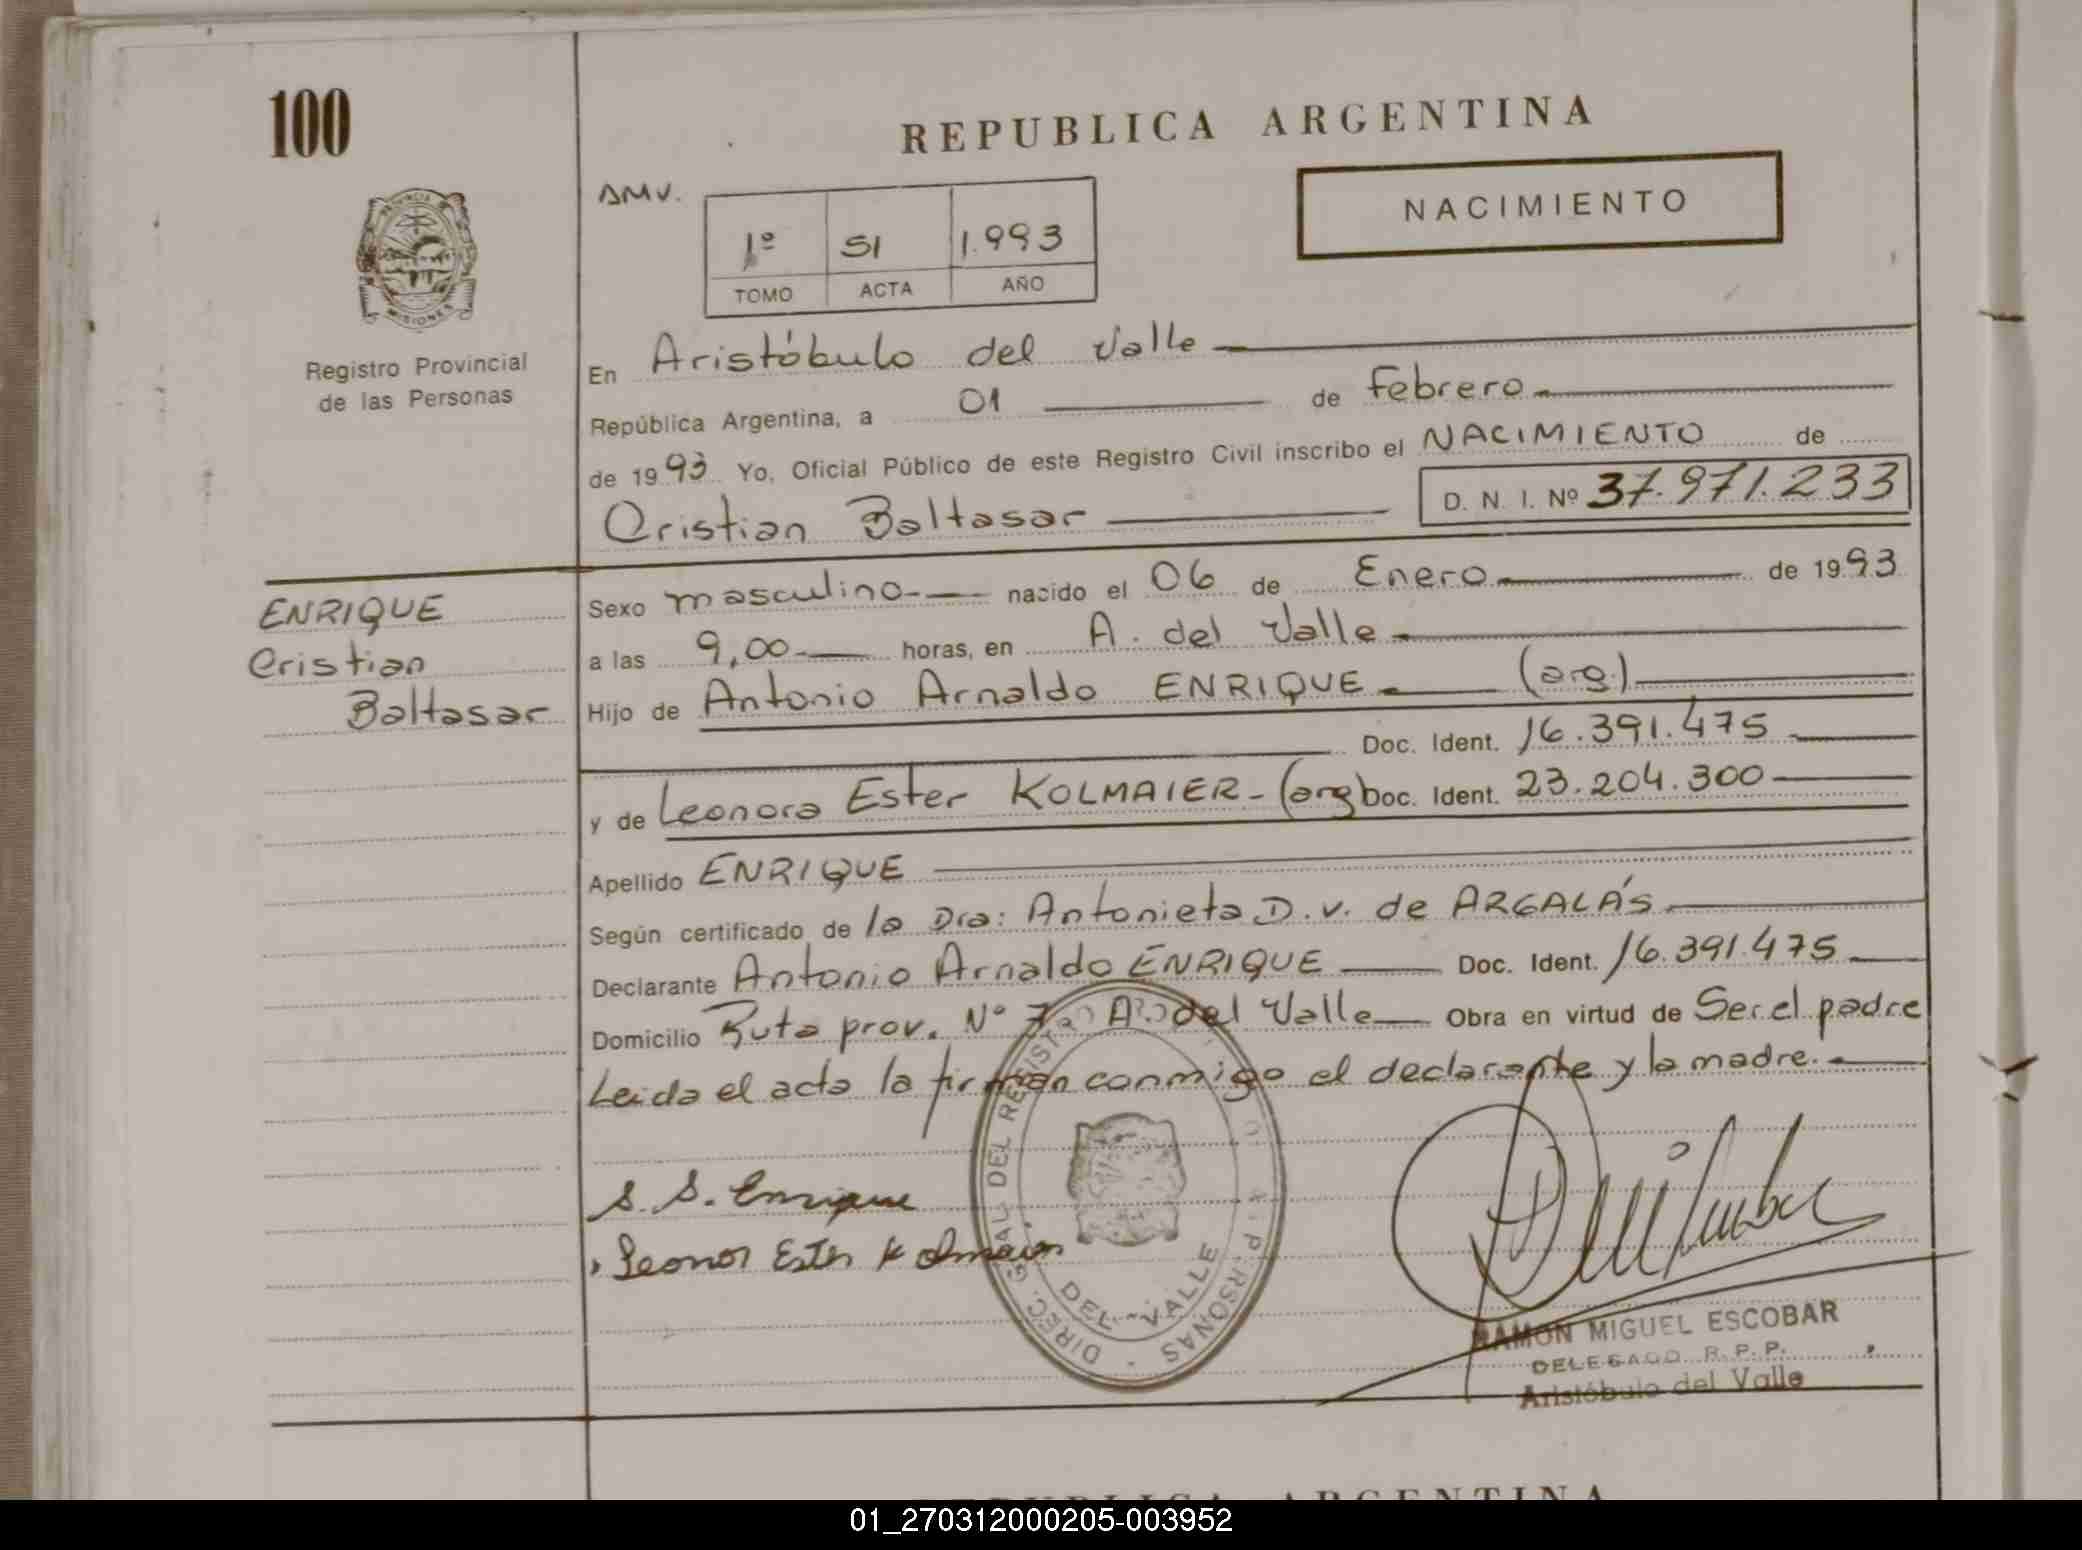 100
REPUBLICA ARGENTINA
NACIMIENTO
AMV.
1º 51 1.993
TOMO ACTA AÑO
PROVINCIA
MISIONES
Registro Provincial
de las Personas
En Aristóbulo del Valle
República Argentina, a 01 de Febrero
de 1993 Yo, Oficial Público de este Registro Civil inscribo el NACIMIENTO de
Cristian Baltasar D. N. I. Nº 37.971.233
ENRIQUE
Cristian
Baltasar
Sexo masculino nacido el 06 de Enero de 1993
a las 9,00 horas, en A. del Valle
Hijo de Antonio Arnaldo ENRIQUE (arg)
Doc. Ident. 16.391.475
y de Leonora Ester KOLMAIER - (arg) Doc. Ident. 23.204.300
Apellido ENRIQUE
Según certificado de la Dra: Antonieta D. V. de ARGALÁS
Declarante Antonio Arnaldo ENRIQUE Doc. Ident. 16.391.475
Domicilio Ruta prov. Nº 7 Aº del Valle Obra en virtud de Ser el padre
Leida el acta la firman conmigo el declarante y la madre.
Enrique
Leonor Ester Kolmaier
DIREC. GRAL. DEL REGISTRO PERSONAS
DEL VALLE
RAMON MIGUEL ESCOBAR
DELEGADO R. P. P.
Aristóbulo del Valle
REPUBLICA ARGENTINA
01_270312000205-003952